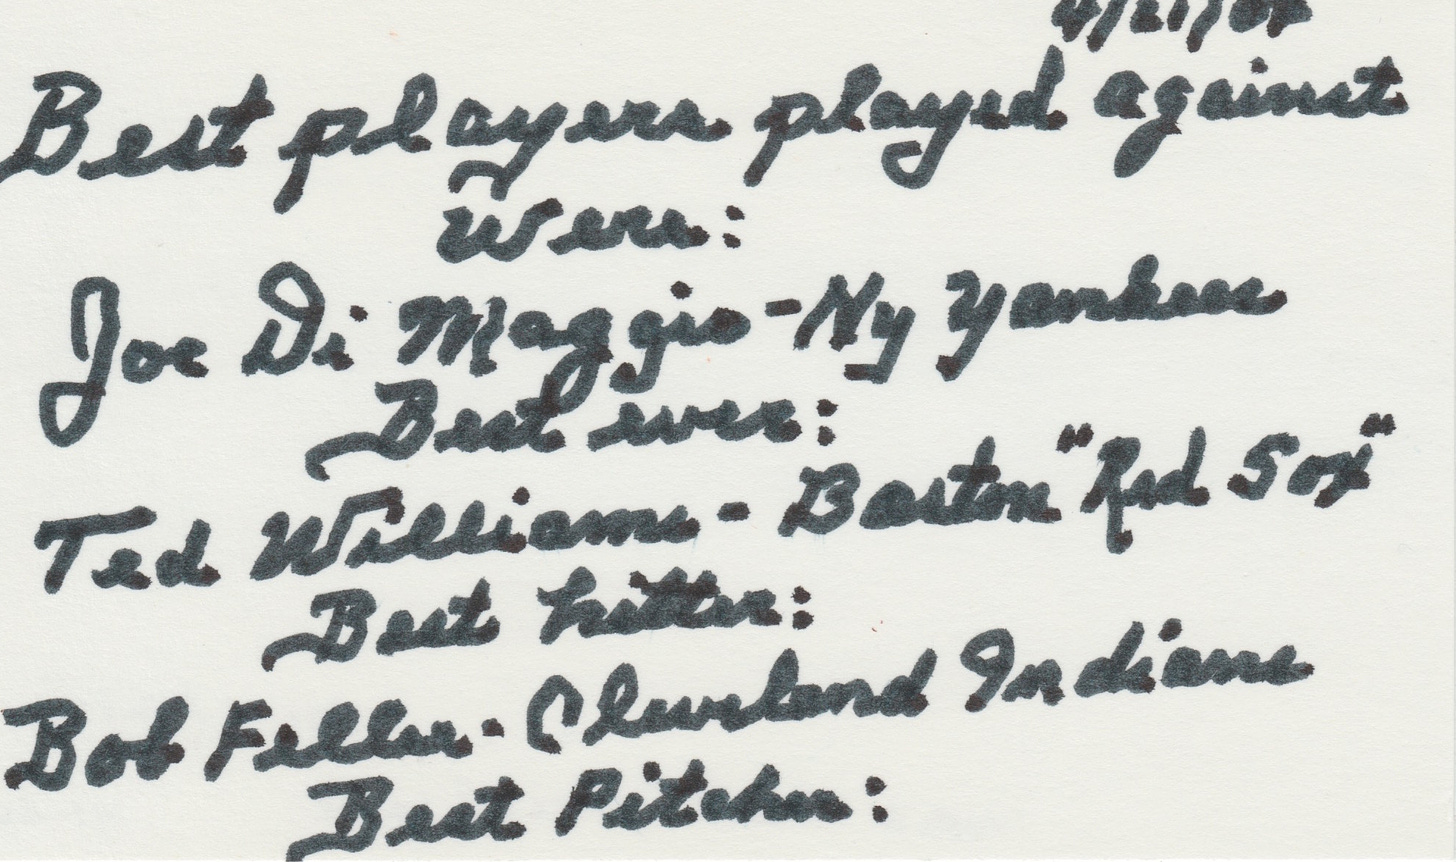 Best players played against
Were:
Joe Di Maggio - Ny Yankees
Best ever:
Ted Williams - Boston "Red Sox"
Best hitter:
Bob Feller - Cleveland Indians
Best Pitcher: